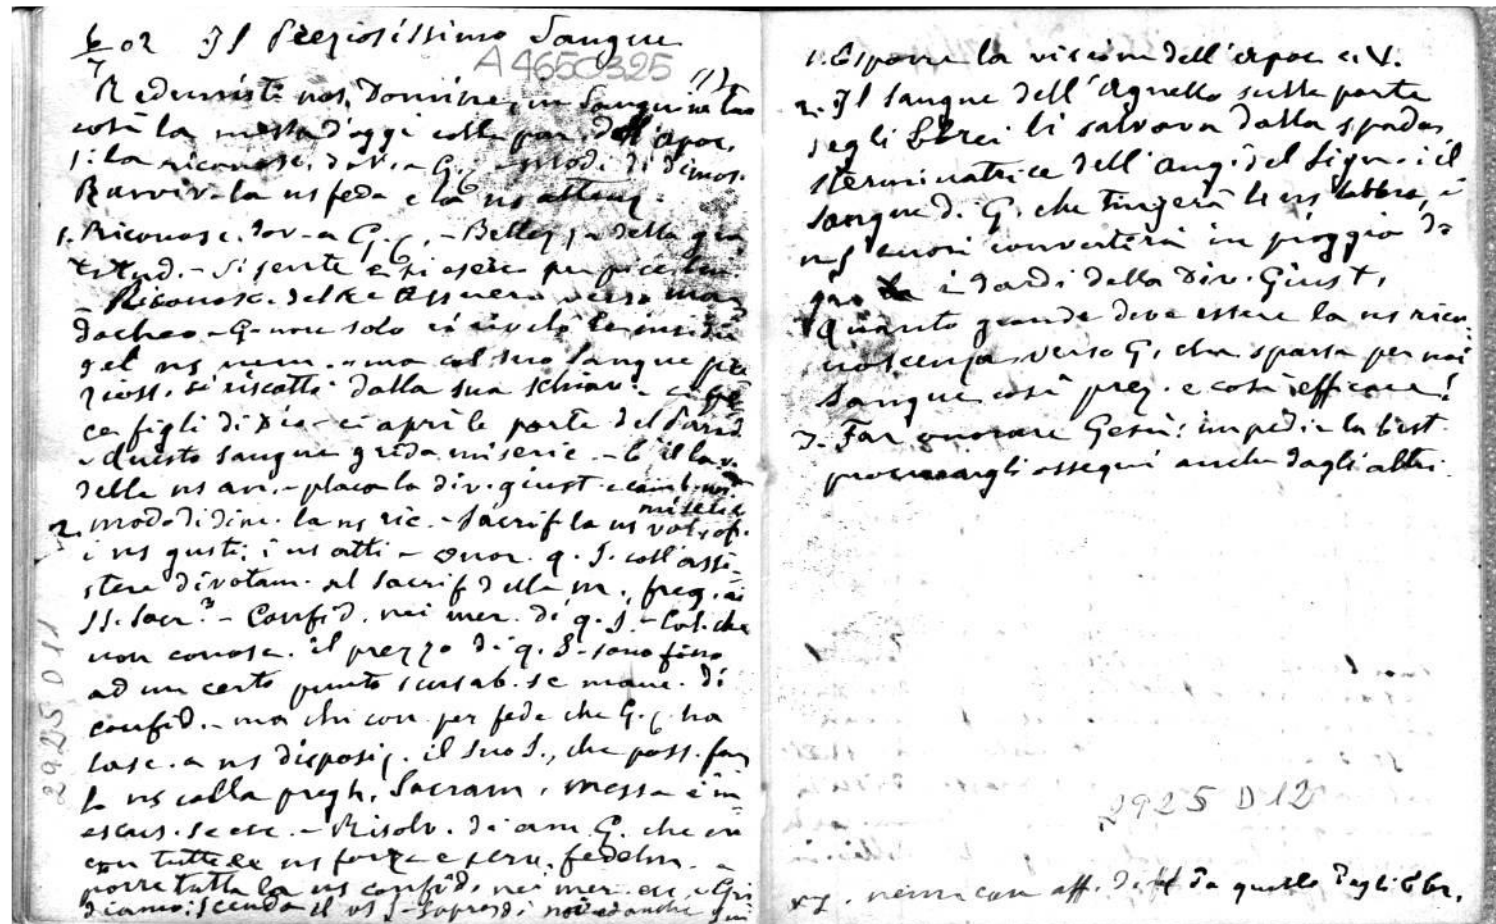 6/7 02 Il Preziosissimo Sangue
A4650325
Redemisti nos, Domine, in Sanguine tuo
così la messa d'oggi colle par. dell'apoc.
si la riconosc. dov. a G. C. - modi di dimos.
Ravviv. la ns fede e la ns attenz.
1. Riconosc. dov. a G. C. - Bellezza della gra
titud. - Si sente
- Riconosc. del Re Assuero verso Mar
docheo - G. non solo ci rivelò le insidie
del ns nem. ma col suo Sangue pre
zioss. ci riscattò dalla sua schiav. - ci fe
ce figli di Dio - ci aprì le porte del Parad.
- Questo sangue grida miseric. - È il lav.
della ns an. - placa la div. giust. e camb. in
miseric
2. modo di dim. la ns ric. - Sacrif la ns vol.
i ns gusti, i ns atti - onor. q. S. coll'assi
stere divotam. al Sacrif della m., freq. ai
SS. Sacr.ti - Confid. nei mer. di q. S. - Col. che
non conosc. il prezzo di q. S. sono fino
ad un certo punto scusab. se manc. di
confid. - ma chi con. per fede che G. C. ha
lasc. a ns disposiz. il suo S., che poss. far
lo ns colla pregh, Sacram, messa è in
escus. se ecc. - Risolv. di am G. che
con tutte le ns forze e serv. fedelm. -
porre tutta la ns confid. nei mer. ecc. - Gri
diamo: scenda il vs S. sopra di noi ed anche
2925 D 11
1. Esporre la visione dell'apoc c. V.
2. Il sangue dell'Agnello sulle porte
degli Ebrei li salvava dalla spada
sterminatrice dell'ang. del Sign. - il
sangue di G. che tingerà le ns labbra, i
ns cuori convertirà in pioggia di
grazia i dardi della Div. Giust.
Quanto grande deve essere la ns rico
noscenza verso G. che sparse per noi
Sangue così prez. e così efficace!
3. Far onorare Gesù: impedir la best.
procurargli ossequi anche dagli altri.
2925 D 12
da quello degli Ebr.